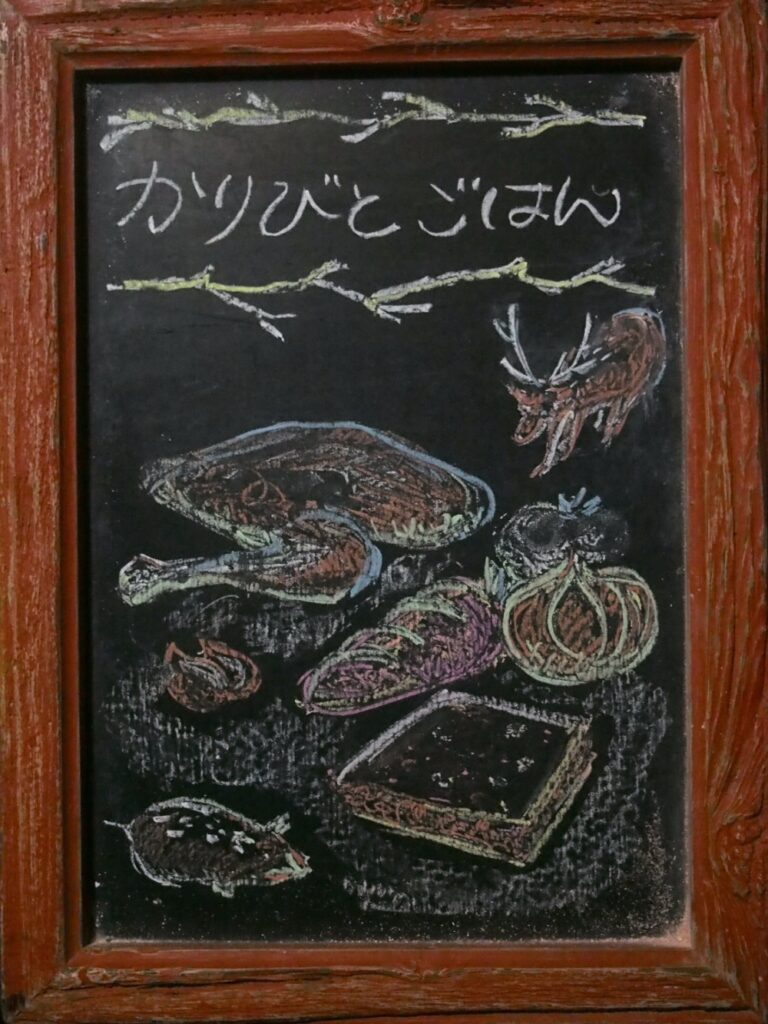 かりびとごはん